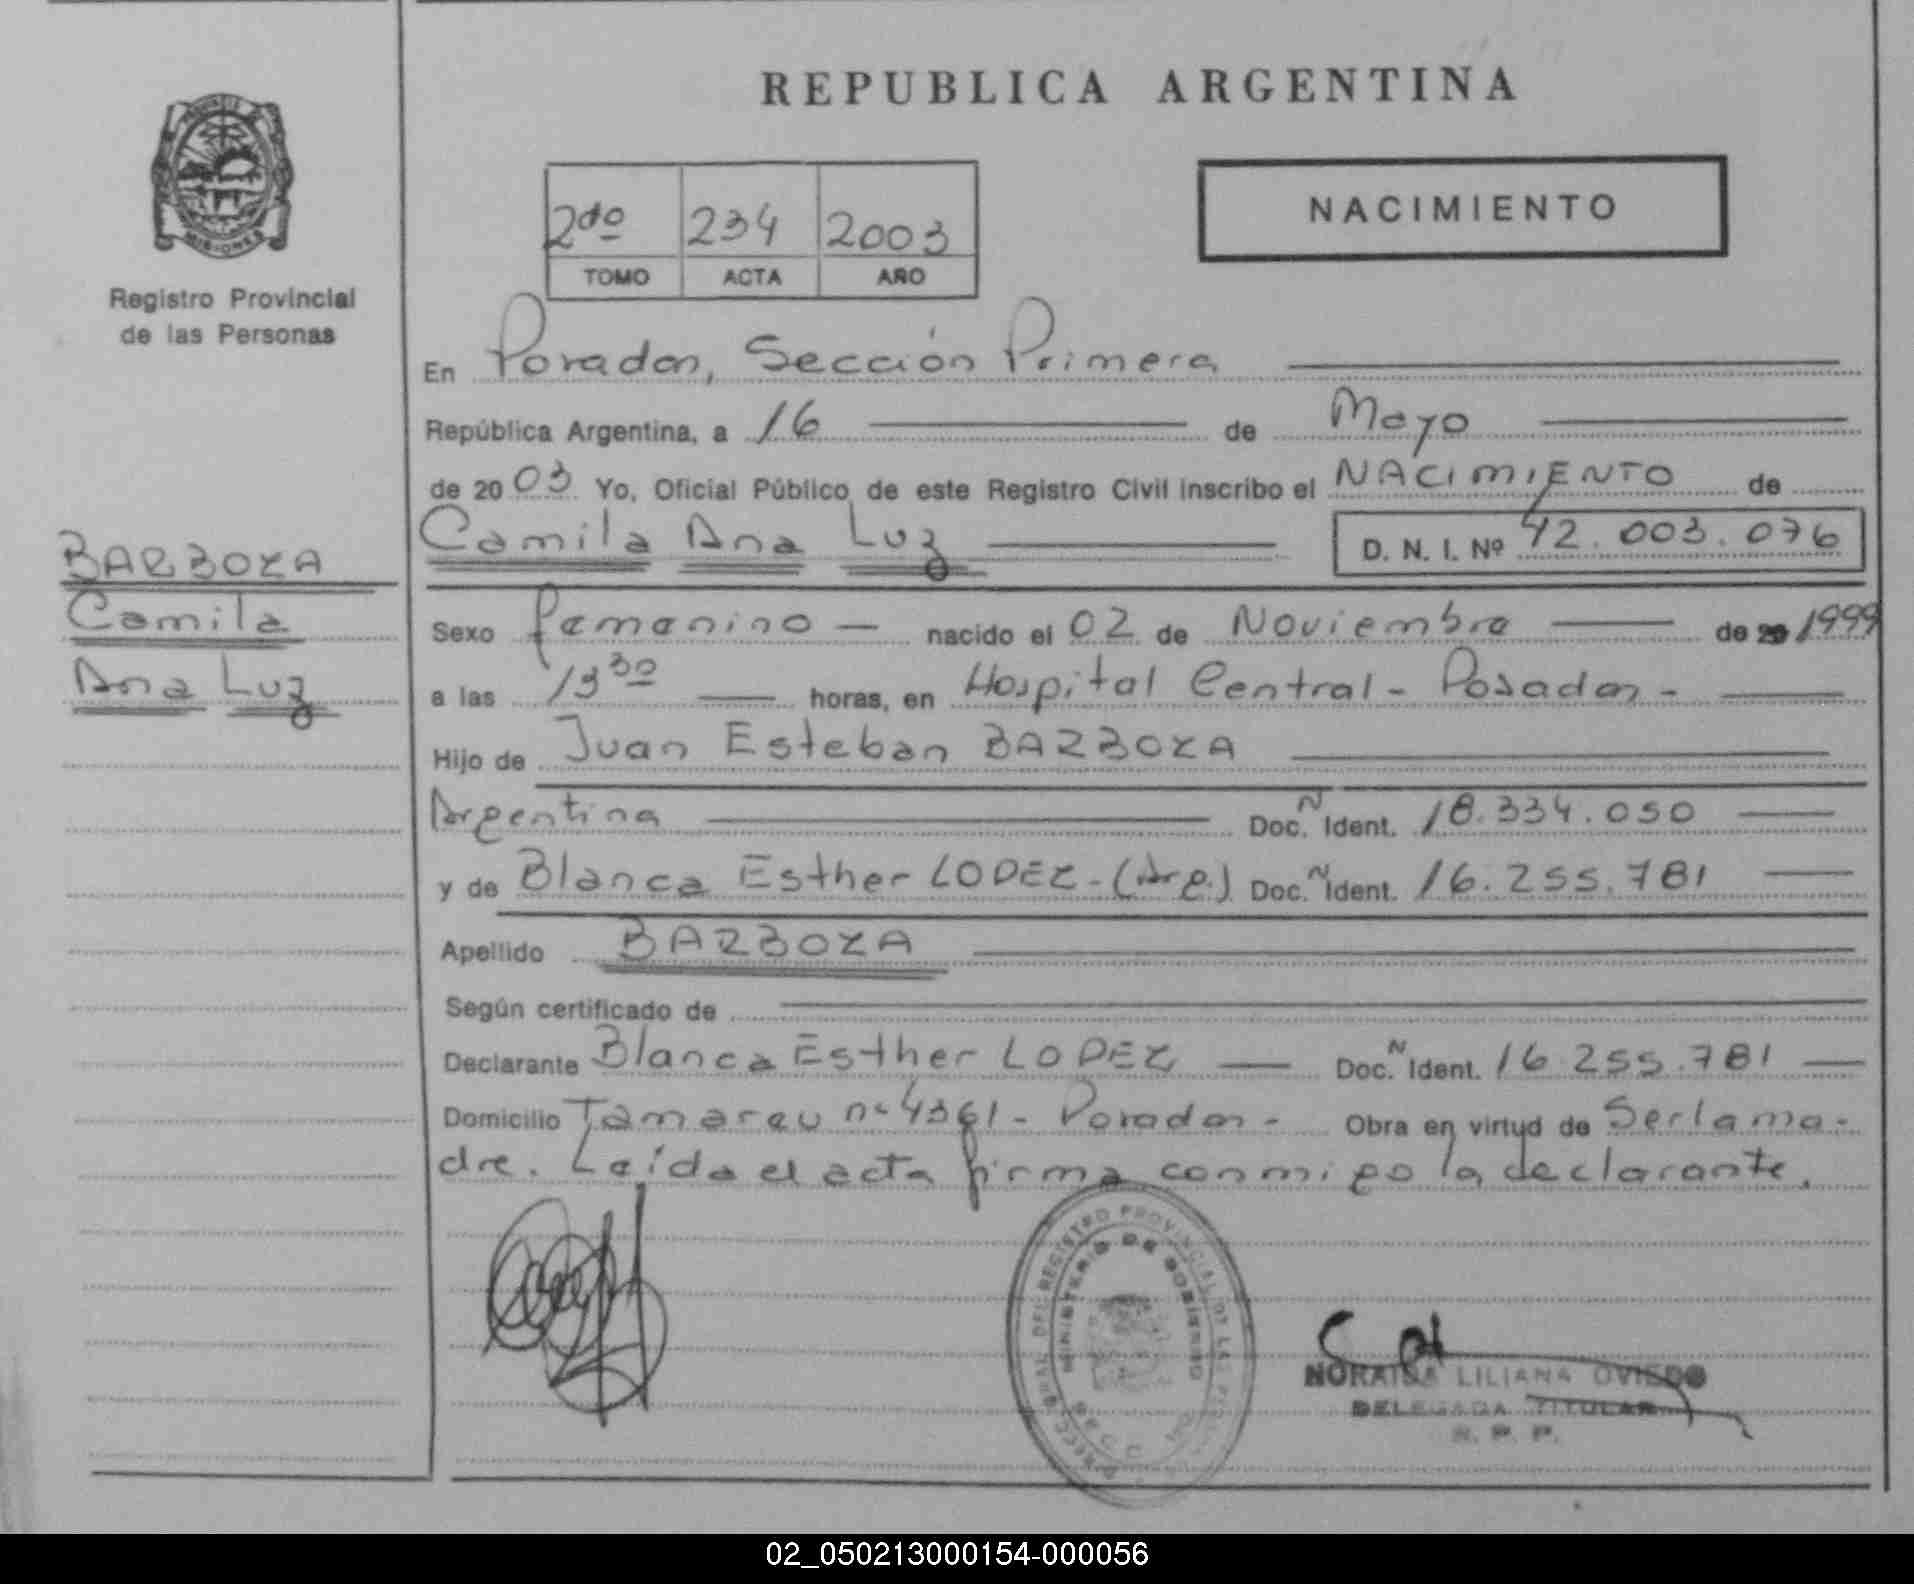 REPUBLICA ARGENTINA
PROVINCIA
MISIONES
Registro Provincial
de las Personas
2do 234 2003
TOMO ACTA AÑO
NACIMIENTO
En Posadas, Sección Primera
República Argentina, a 16 de Mayo
de 2003 Yo, Oficial Público de este Registro Civil inscribo el NACIMIENTO de
Camila Ana Luz D. N. I. Nº 42.003.076
BARBOZA
Camila
Ana Luz
Sexo femenino — nacido el 02 de Noviembre de 20 1999
a las 13 30 horas, en Hospital Central - Posadas -
Hijo de Juan Esteban BARBOZA
Argentina Doc. N Ident. 18.334.050
y de Blanca Esther LOPEZ - (Arg.) Doc. N Ident. 16.255.781
Apellido BARBOZA
Según certificado de
Declarante Blanca Esther LOPEZ — Doc. N Ident. 16.255.781
Domicilio Tamareu nº 4361 - Posadas - Obra en virtud de Ser la ma-
dre. Leída el acta firma conmigo la declarante.
REGISTRO PROVINCIAL DE LAS
MINISTERIO DE GOBIERNO
LILIANA OVIEDO
DELEGADA TITULAR
R. P. P.
02_050213000154-000056